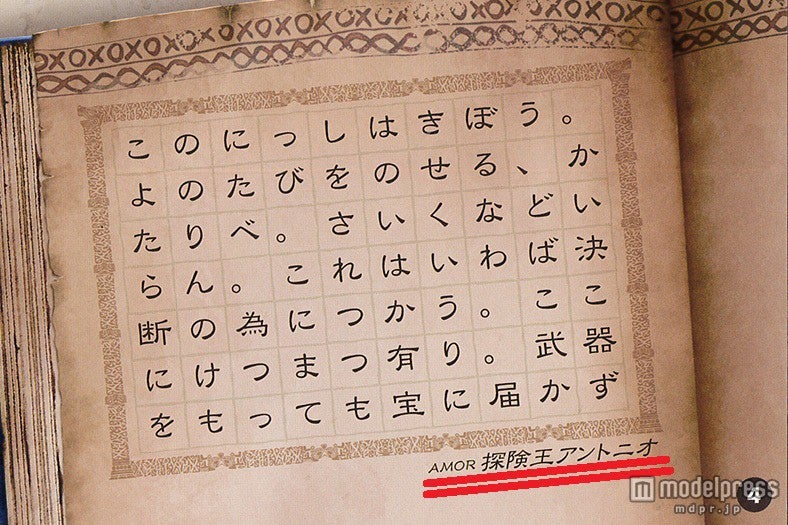 このにっしはきぼう。
よのたびをのせる、か
たりべ。さいくなどい
らん。これはいわば決
断の為につかう。ここ
にけつまつ有り。武器
をもっても宝に届かず
AMOR 探険王アントニオ
modelpress
mdpr.jp
4